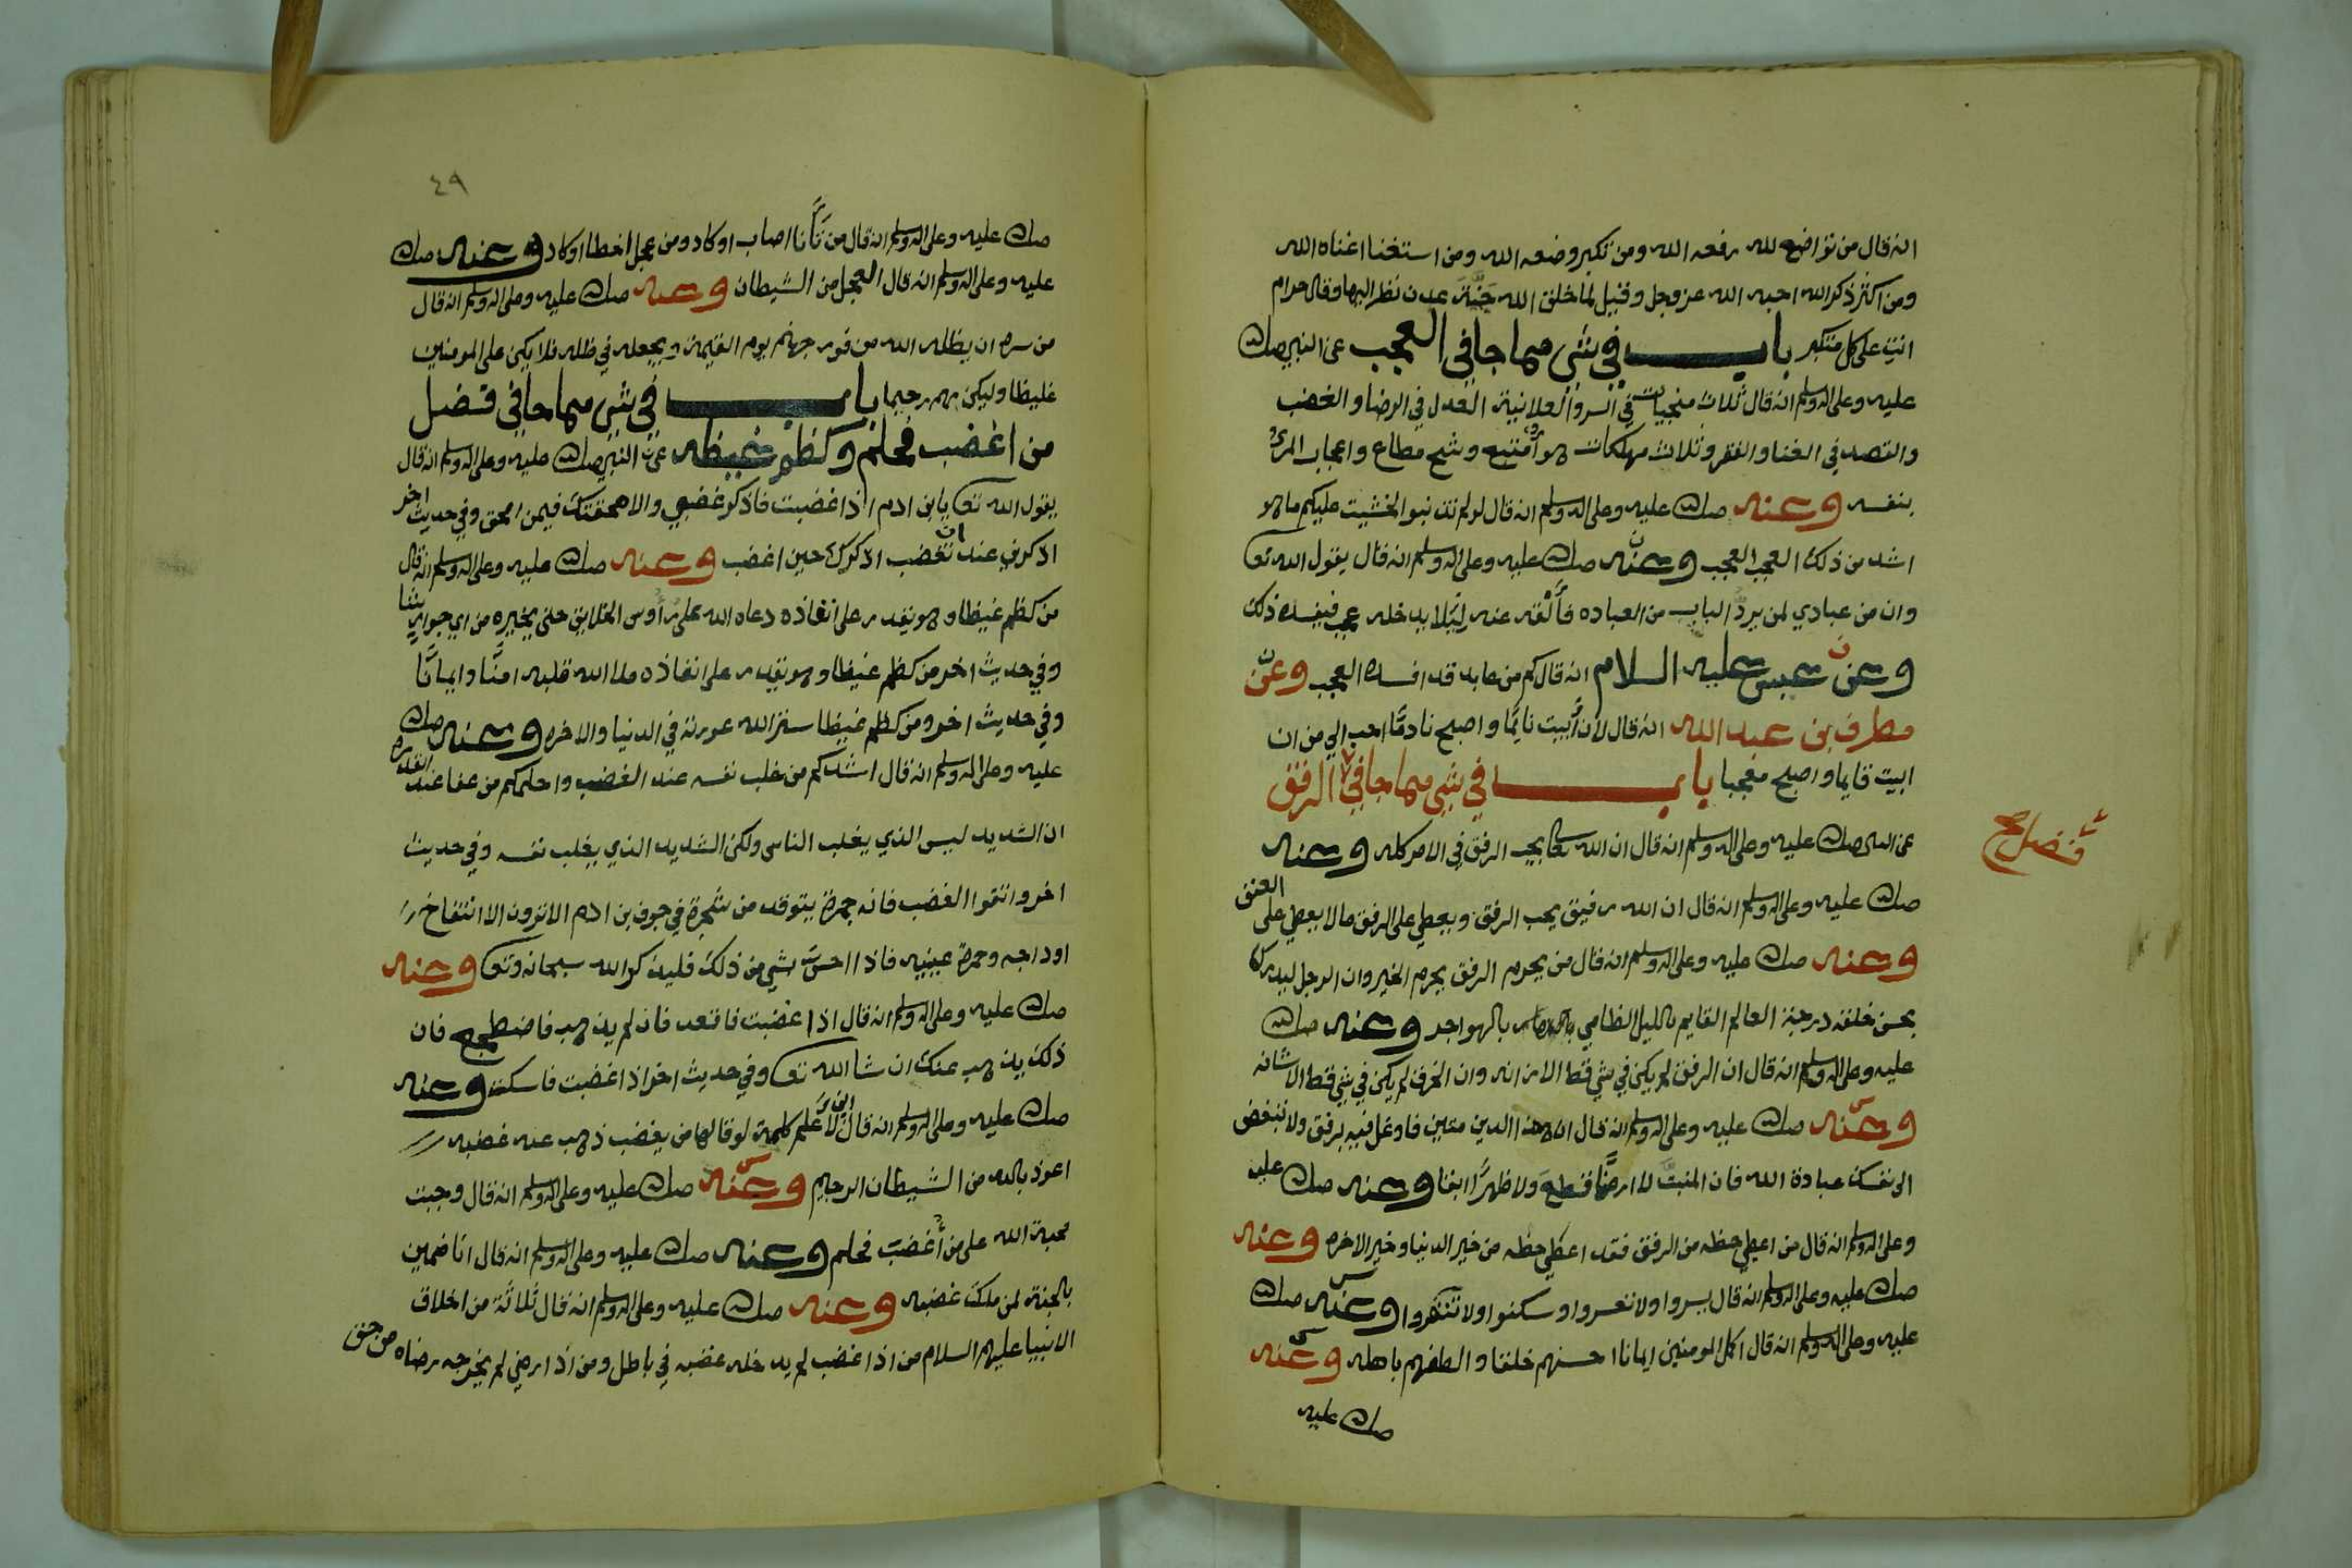 انه قال من تواضع لله رفعه الله ومن تكبر وضعه الله ومن استغنا اغناه الله
ومن اكثر ذكر الله احبه الله عز وجل وقيل لما خلق الله جَنَّةَ عدن نظر اليها وقال حرام
انتِ على كل متكبر باب في شي مما جا في العجب عن النبي صلى الله
عليه وعلى اله وسلم انه قال ثلاث منجيات في السر والعلانية العدل في الرضا والغضب
والقصد في الغنا والفقر وثلاث مهلكات هوا متبع وشح مطاع واعجاب المرء
بنفسه وعنه صلى الله عليه وعلى اله وسلم انه قال لو لم تذنبوا لخشيت عليكم ما هو
اشد من ذلك العجب العجب وعنه صلى الله عليه وعلى اله وسلم انه قال يقول الله تعا
وان من عبادي لمن يردُ الباب من العباده فأَلْقه عنه لِيَلا يدخله عجب فيفسده ذلك
وعن عيسى عليه السلام انه قال كم من عابد قد افسده العجب وعن
مطرف بن عبد الله انه قال لان أَبيت نايمًا واصبح نادمًا احب الي من ان
ابيت قايما واصبح معجبا باب في شي مما جا في الرفق
فضل صح
عن النبي صلى الله عليه وعلى اله وسلم انه قال ان الله تعا يحب الرفق في الامر كله وعنه
صلى الله عليه وعلى اله وسلم انه قال ان الله رفيق يحب الرفق ويعطي على الرفق ما لا يعطي على العنف
وعنه صلى الله عليه وعلى اله وسلم انه قال من يحرم الرفق يحرم الخير وان الرجل ليدرك
بحسن خلقه درجة العالم القايم بالليل الظامي بالهواجر وعنه صلى الله
عليه وعلى اله وسلم انه قال ان الرفق لم يكن في شي قط الا زانه وان الخرق لم يكن في شي قط الا شانه
وعنه صلى الله عليه وعلى اله وسلم انه قال ان هذا الدين متين فاوغل فيه برفق ولا تبغض
الى نفسك عبادة الله فان المنبتَّ لا ارضًا قطع ولا ظهرًا ابقا وعنه صلى الله عليه
وعلى اله وسلم انه قال من اعطي حظه من الرفق فقد اعطي حظه من خير الدنيا وخير الاخره وعنه
صلى الله عليه وعلى اله وسلم انه قال يسروا ولا تعسروا وسكنوا ولا تنفروا وعنه صلى الله
عليه وعلى اله وسلم انه قال اكمل المومنين ايمانا احسنهم خلقا والطفهم باهله وعنه
صلى الله عليه
٤٩
صلى الله عليه وعلى اله وسلم انه قال من تَأَنَّا اصاب او كاد ومن عجل اخطا او كاد وعنه صلى الله
عليه وعلى اله وسلم انه قال العجل من الشيطان وعنه صلى الله عليه وعلى اله وسلم انه قال
من سره ان يظله الله من فور جهنم يوم القيمة ويجعله في ظله فلا يكن على المومنين
غليظا وليكن بهم رحيما باب في شي مما جا في فضل
من اغضب فحلم وكظم غيظه عن النبي صلى الله عليه وعلى اله وسلم انه قال
يقول الله تعا يابن ادم اذا غضبت فاذكر غضبي والا محقتك فيمن امحق وفي حديث اخر
اذكرني عند ان تغضب اذكرك حين اغضب وعنه صلى الله عليه وعلى اله وسلم انه قال
من كظم غيظا وهو يقدر على انفاذه دعاه الله على رأوس الخلايق حتى يخيره من اي حور العين شا
وفي حديث اخر من كظم غيظا وهو يقدر على انفاذه ملا الله قلبه امنًا وايمانًا
وفي حديث اخر ومن كظم غيظا ستر الله عورته في الدنيا والاخره وعنه صلى الله
عليه وعلى اله وسلم انه قال اشدكم من غلب نفسه عند الغضب واحلمكم من عفا عند القدره
ان الشديد ليس الذي يغلب الناس ولكن الشديد الذي يغلب نفسه وفي حديث
اخر واتقوا الغضب فانه جمرة يتوقد من شجرة في جوف بن ادم الا ترون الا انتفاخ
اوداجه وحمرة عينيه فاذا احسَّ بشي من ذلك فليذكر الله سبحانه وتعا وعنه
صلى الله عليه وعلى اله وسلم انه قال اذا غضبت فاقعد فان لم يذهب فاضطجع فان
ذلك يذهب عنك ان شا الله تعا وفي حديث اخر اذا غضبت فاسكت وعنه
صلى الله عليه وعلى اله وسلم انه قال اني لاعلم كلمة لو قالها من يغضب ذهب عنه غضبه
اعوذ بالله من الشيطان الرجيم وعنه صلى الله عليه وعلى اله وسلم انه قال وجبت
محبة الله على من أُغضِبَ فحلم وعنه صلى الله عليه وعلى اله وسلم انه قال انا ضمين
بالجنة لمن ملك غضبه وعنه صلى الله عليه وعلى اله وسلم انه قال ثلاثة من اخلاق
الانبيا عليهم السلام من اذا غضب لم يدخله غضبه في باطل ومن اذا رضي لم يخرجه رضاه من حق